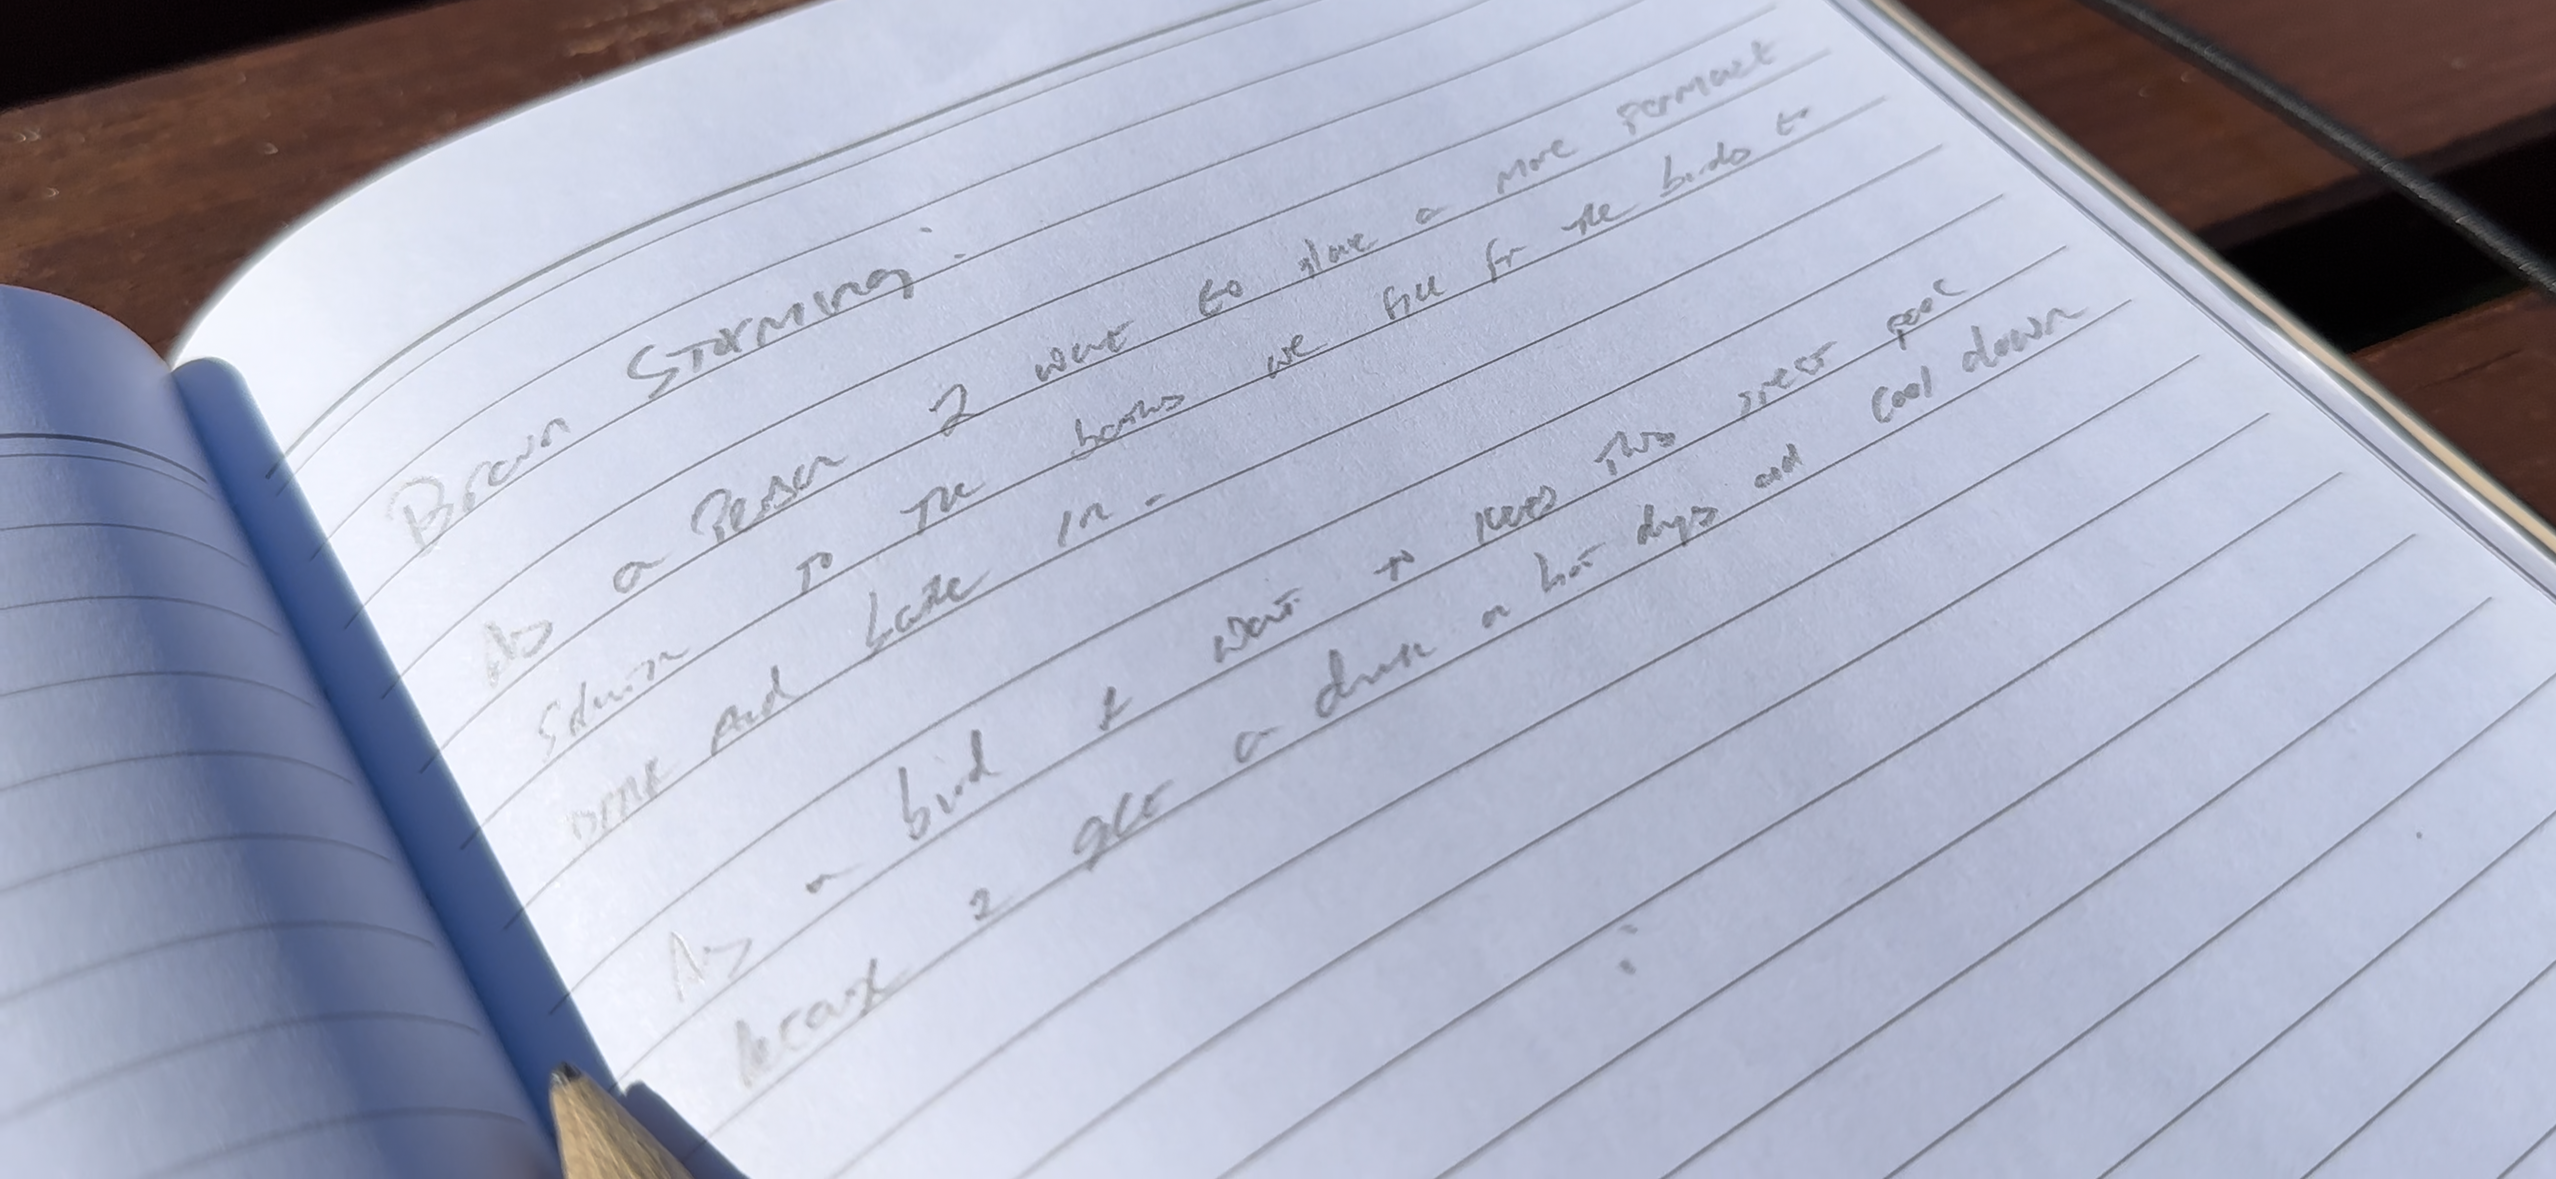 Brain Storming:
As a Person I want to have a more permanet
Soluition To The baths we fill for the birds to
Drink And bathe in -
As a bird I want to keep this sweet pool
because I get a drink on hot days and cool down